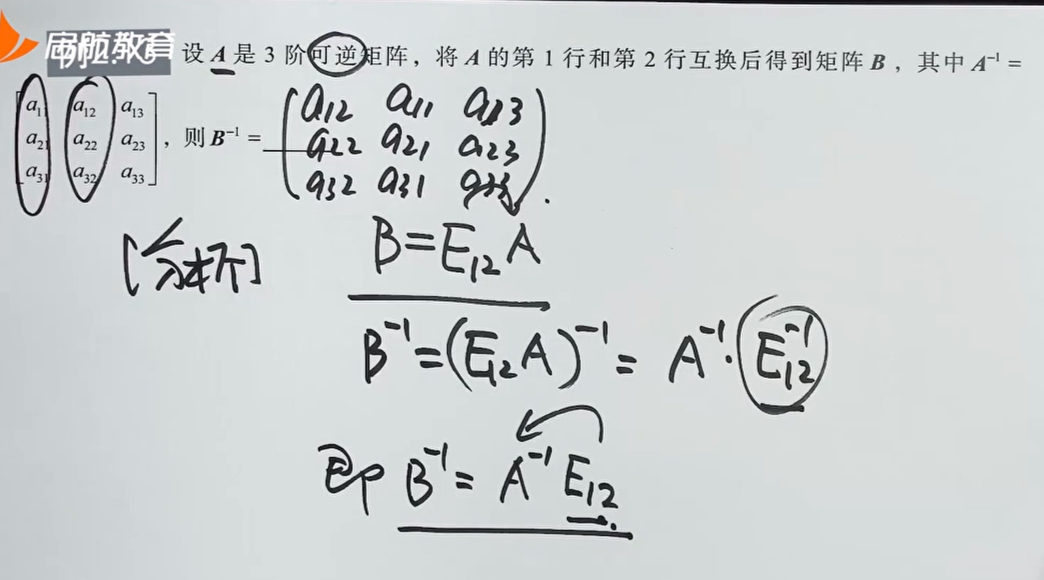 启航教育
设 A 是 3 阶可逆矩阵，将 A 的第 1 行和第 2 行互换后得到矩阵 B，其中 A⁻¹ =
[a₁₁ a₁₂ a₁₃
a₂₁ a₂₂ a₂₃
a₃₁ a₃₂ a₃₃]，则 B⁻¹ =
(a12 a11 a13
a22 a21 a23
a32 a31 a33).
[分析]
B=E₁₂A
B⁻¹=(E₁₂A)⁻¹=A⁻¹·E₁₂⁻¹
即 B⁻¹=A⁻¹E₁₂.